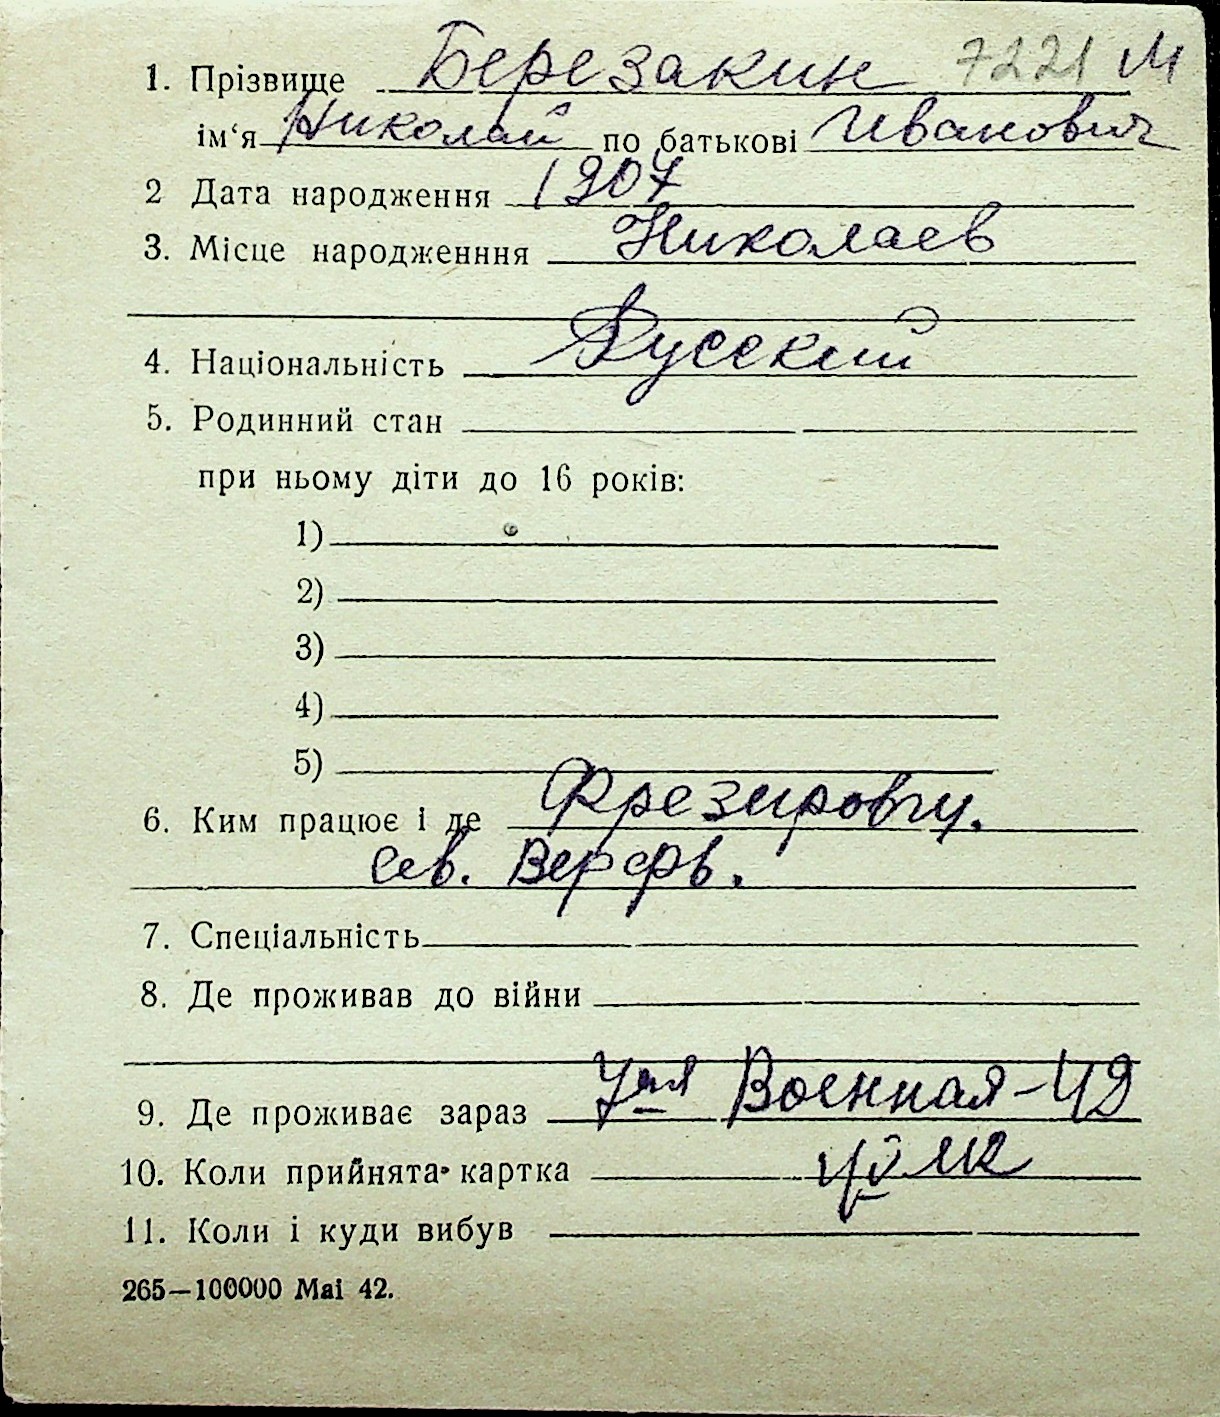 1. Прізвище Березакин 7221 М
ім‘я Николай по батькові Иванович
2 Дата народження 1907
3. Місце народженння Николаев
4. Національність Русский
5. Родинний стан
при ньому діти до 16 років:
1)
2)
3)
4)
5)
6. Ким працює і де Фрезировщ.
Сев. Верфь.
7. Спеціальність
8. Де проживав до війни
9. Де проживає зараз Военная-49
10. Коли прийнята картка
11. Коли і куди вибув
265—100000 Mai 42.